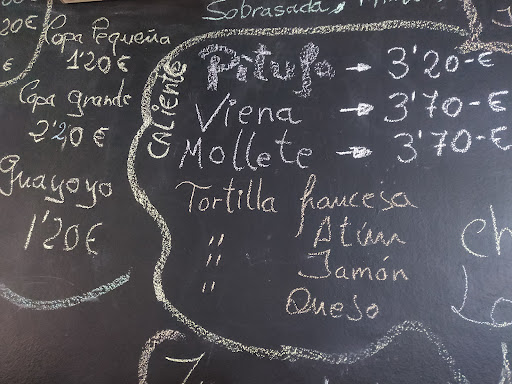 Sobrasada,
20€
€
Copa Pequeña
1'20€
Copa grande
2'20€
Guayoyo
1'20€
Caliente
Pitufo → 3'20-€
Viena → 3'70-€
Mollete → 3'70-€
Tortilla francesa
" Atún
" Jamón
" Queso